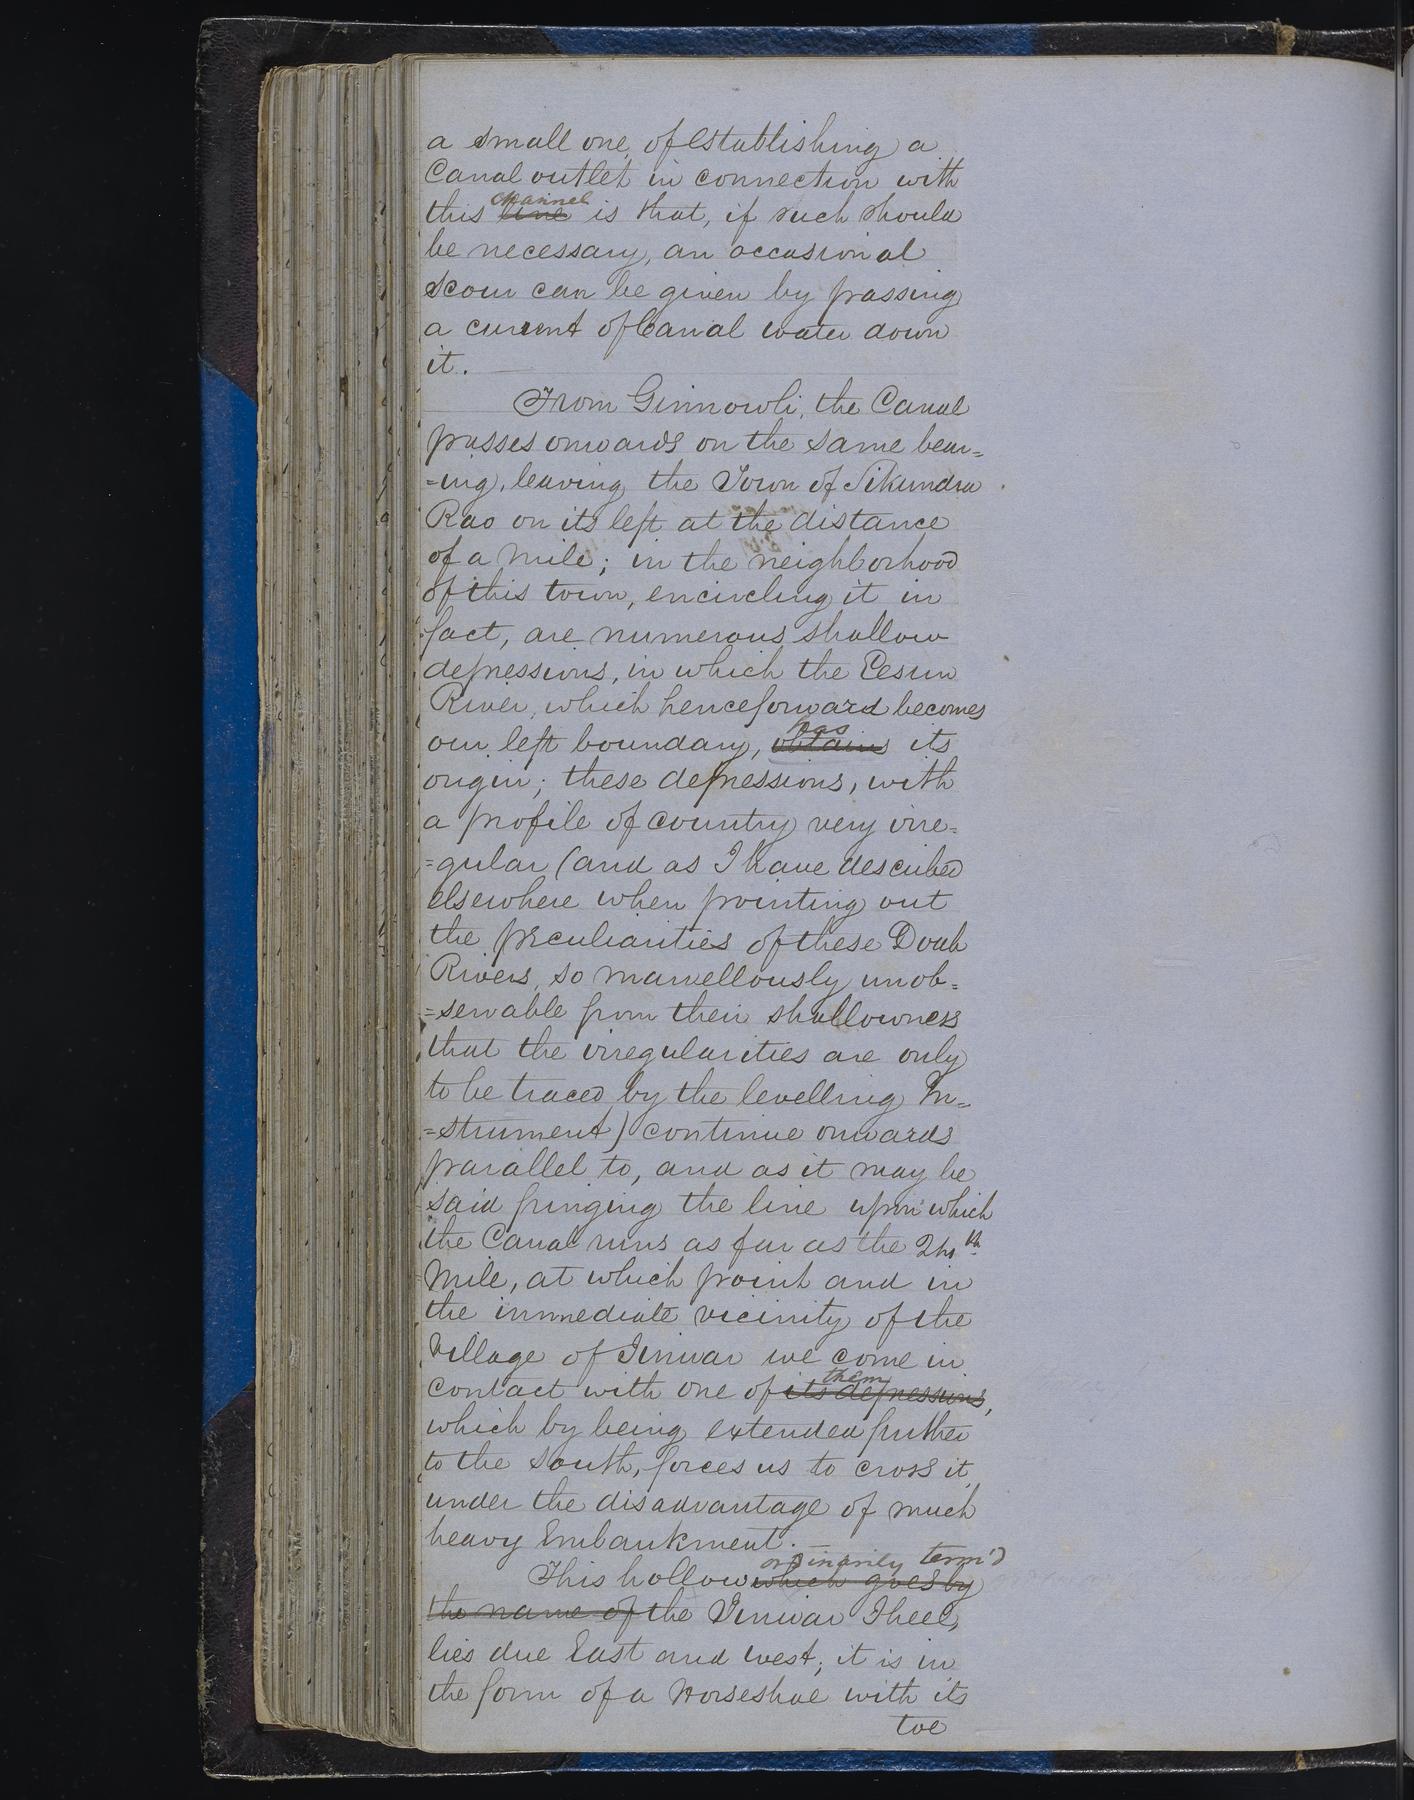 a small one, of establishing a
Canal outlet in connection with
channel
this line is that, if such should
be necessary, an occasional
scour can be given by passing
a current of Canal water down
it.
From Ginnowli, the Canal
passes onwards on the same bear=
=ing, leaving the Town of Sikundra
Rao on its left at the distance
of a mile; in the neighborhood
of this town, encircling it in
fact, are numerous shallow
depressions, in which the Eesun
River, which henceforward becomes
has
our left boundary, obtains its
origin; these depressions, with
a profile of country very irre=
=gular (and as I have described
elsewhere when pointing out
the peculiarities of these Doab
Rivers, so marvellously unob=
=servable from their shallowness
that the irregularities are only
to be traced by the levelling In=
=strument) continue onwards
parallel to, and as it may be
said fringing the line upon which
the Canal runs as far as the th
Mile, at which point and in
the immediate vicinity of the
Village of Jinwar we come in
them
contact with one of its depressions,
which by being extended further
to the South, forces us to cross it
under the disadvantage of much
heavy Embankment.
ordinarily term'd
This hollow which goes by
the name of the Jinwar Jheel,
lies due East and west; it is in
the form of a Horseshoe with its
toe